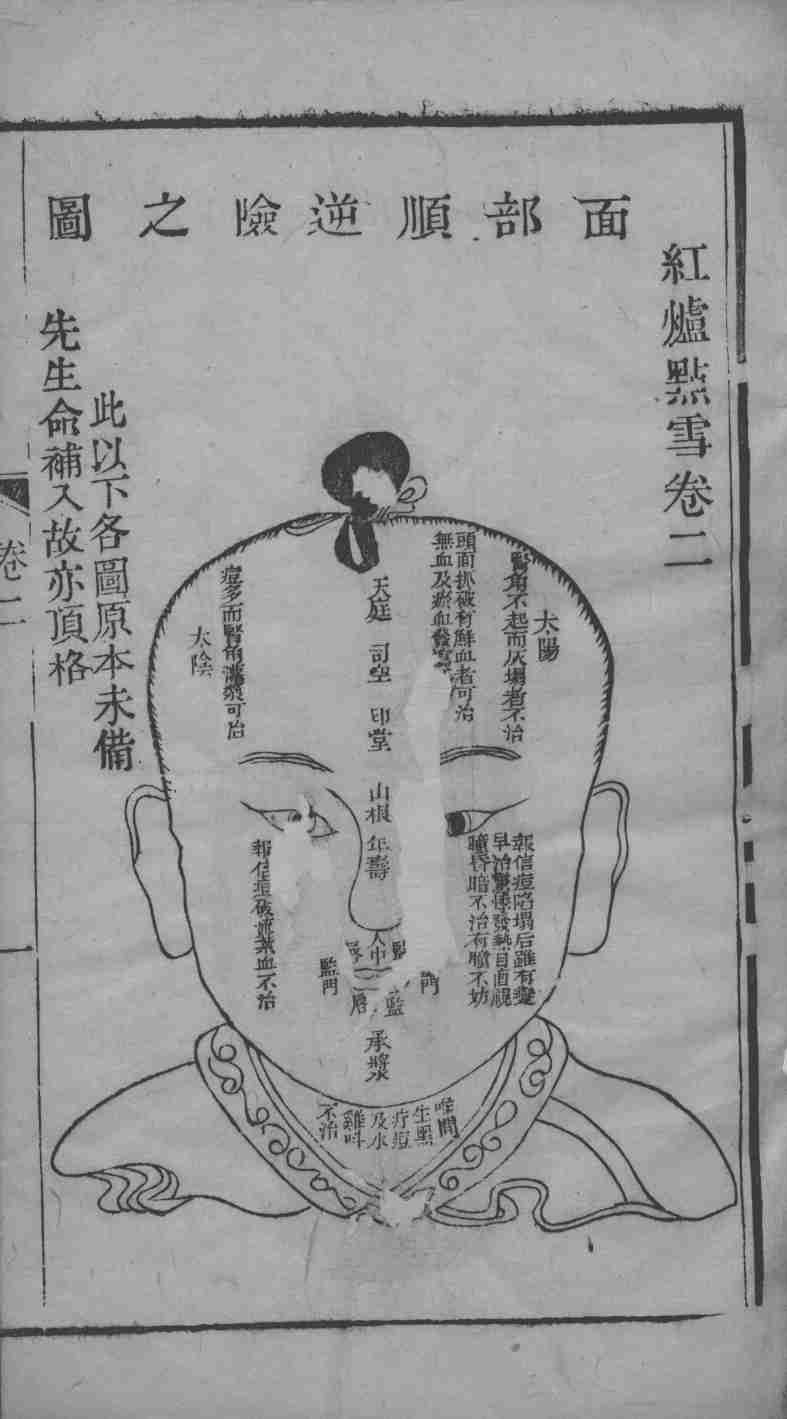 紅爐點雪卷二
面部順逆險之圖
太陽
腎角不起而灰塌者不治
頭面抓破有鮮血者可治
無血及瘀血
天庭
司空
印堂
山根
年壽
人中
承漿
痘多而腎角灌漿可治
太陰
報信痘陷塌后雖有變
早治驚悸發熱目直視
瞳昏暗不治有瞻不妨
報信痘破流葉血不治
監門
門
唇
監
喉間
生黑
疔痘
及水
雞呌
不治
此以下各圖原本未備
先生命補入故亦頂格
卷二
一